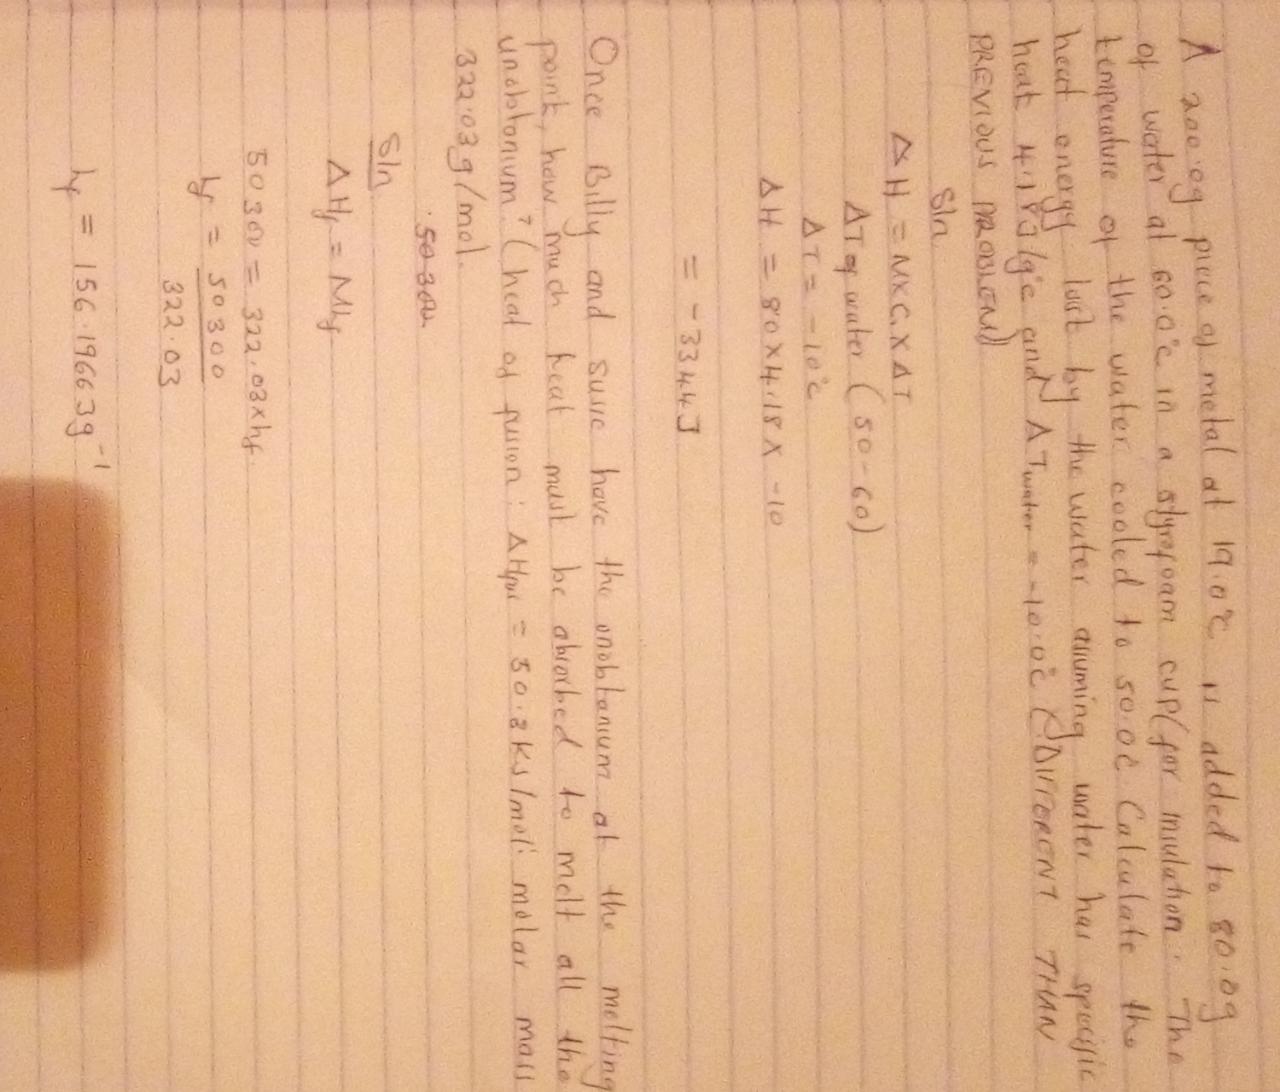 A 200.0g piece of metal at 19.0°C is added to 80.0g
of water at 60.0°C in a styrofoam cup (for insulation. The
temperature of the water cooled to 50.0°C Calculate the
heat energy lost by the water assuming water has specific
heat 4.18J/g°C and ΔTwater = -10.0°C (DIFFERENT THAN
PREVIOUS PROBLEM)
Sln
ΔH = M×C×ΔT
ΔT of water (50-60)
ΔT = -10°C
ΔH = 80×4.18×-10
= -3344J
Once Billy and susie have the unobtanium at the melting
point, how much heat must be absorbed to melt all the
unobtonium? (heat of fusion: ΔHfus = 50.3KJ/mol: molar mass
322.03g/mol.
Sln
ΔHf = Mhf
50300 = 322.03×hf.
hf = 50300
322.03
hf = 156.19663g⁻¹